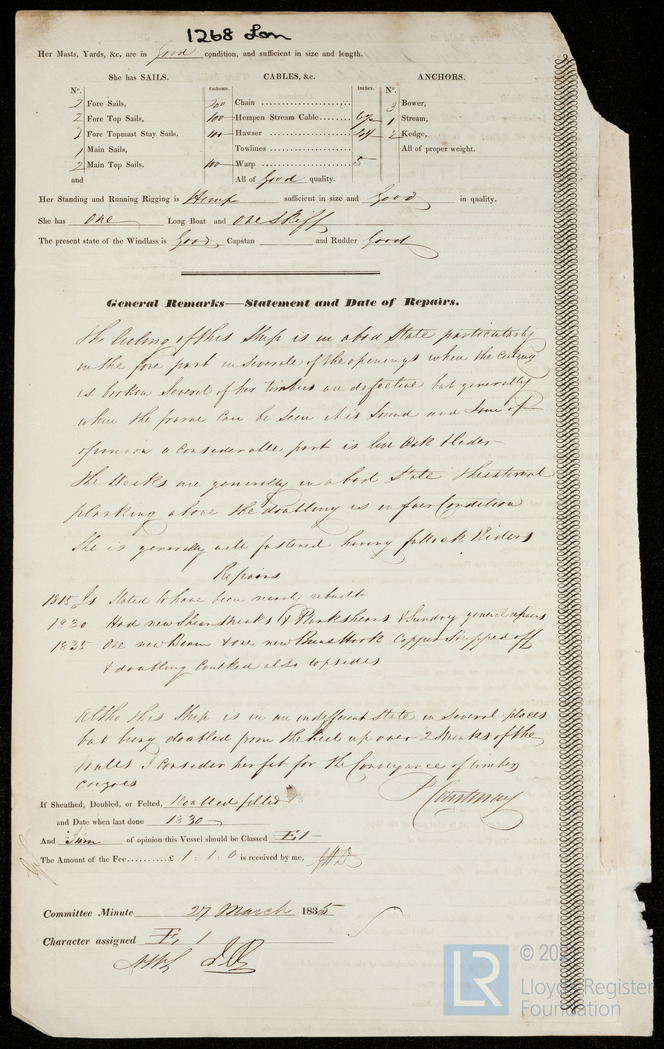 1268 Lon
Her Masts, Yards, &c. are in Good condition, and sufficient in size and length.
She has SAILS. CABLES, &c. ANCHORS.
N°. Fathoms. Inches. N°.
2 Fore Sails, 200 Chain 3 Bower,
2 Fore Top Sails, 100 Hempen Stream Cable 1 Stream,
2 Fore Topmast Stay Sails, 100 Hawser 2 Kedge,
1 Main Sails, Towlines All of proper weight.
2 Main Top Sails, 100 Warp 5
and All of Good quality.
Her Standing and Running Rigging is Hemp sufficient in size and Good in quality.
She has One Long Boat and One Skiff
The present state of the Windlass is Good Capstan and Rudder Good
General Remarks—Statement and Date of Repairs.
The Ceiling of this Ship is in a bad State particularly
in the fore part in severale of the openings where the Ceiling
is broken Several of her timbers are defective but generally
where the frame can be seen it is sound and I am of
opinion a considerable part is live Oak &
The Decks are generally in a bad State the external
planking above the doubling is in fair Condition
She is generally well fastened having futtock Riders
Repairs
1815 Is Stated to have been nearly rebuilt
1830 Had new Shearstreaks & Plankshears & Sundry general repairs
1835 One new Beam & one new Breasthook Copper Stripped off
& doubling Caulked also topsides
Altho this Ship is in an indifferent State in several places
but being doubled from the keel up over 2 Streaks of the
Walls I consider her fit for the Conveyance of timber
cargoes
P Courtenay
If Sheathed, Doubled, or Felted, Doubled felted
and Date when last done 1830
And I am of opinion this Vessel should be Classed E 1
The Amount of the Fee..........£ 1 : 1 : 0 is received by me,
Committee Minute 27 March 1835
Character assigned E. 1
LR
© 202
Lloyd's Register
Foundation